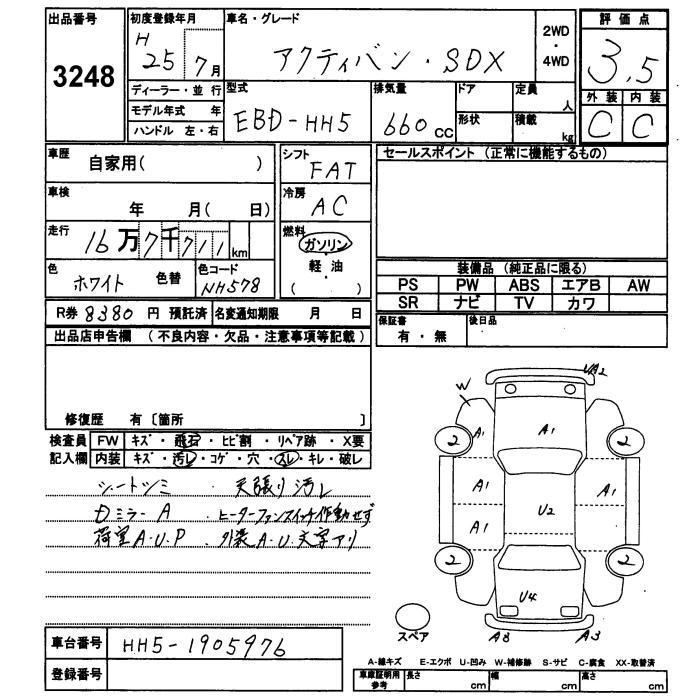 出品番号 初度登録年月 車名・グレード 2WD・4WD 評価点
3248 H 25 7月 アクティバン・SDX 3.5
ディーラー・並行 型式 排気量 ドア 定員 人 外装 内装
モデル年式 年 EBD-HH5 660 cc 形状 積載 kg C C
ハンドル 左・右
車歴 自家用( ) シフト FAT セールスポイント (正常に機能するもの)
車検 年 月( 日) 冷房 AC
走行 16万7千711km 燃料 ガソリン・軽油・( )
色 ホワイト 色替 色コード NH578
装備品 (純正品に限る)
PS PW ABS エアB AW
SR ナビ TV カワ
R券 8380 円 預託済 名変通知期限 月 日 保証書 有・無 後日品
出品店申告欄 (不良内容・欠品・注意事項等記載)
修復歴 有〔箇所 〕
検査員 FW キズ・飛石・ヒビ割・リペア跡・X要
記入欄 内装 キズ・汚レ・コゲ・穴・スレ・キレ・破レ
シートシミ ・天張り汚レ
DミラーA ・ヒーターファンスイッチ作動せず
荷室A.U.P ・外装A.U.文字アリ
UA2
W
2 A1 A1 A1 2
A1 A1
U2
A1
2 2
U4
スペア A3 A3
車台番号 HH5-1905976
登録番号
A-線キズ E-エクボ U-凹み W-補修跡 S-サビ C-腐食 XX-取替済
車庫証明用参考 長さ cm 幅 cm 高さ cm